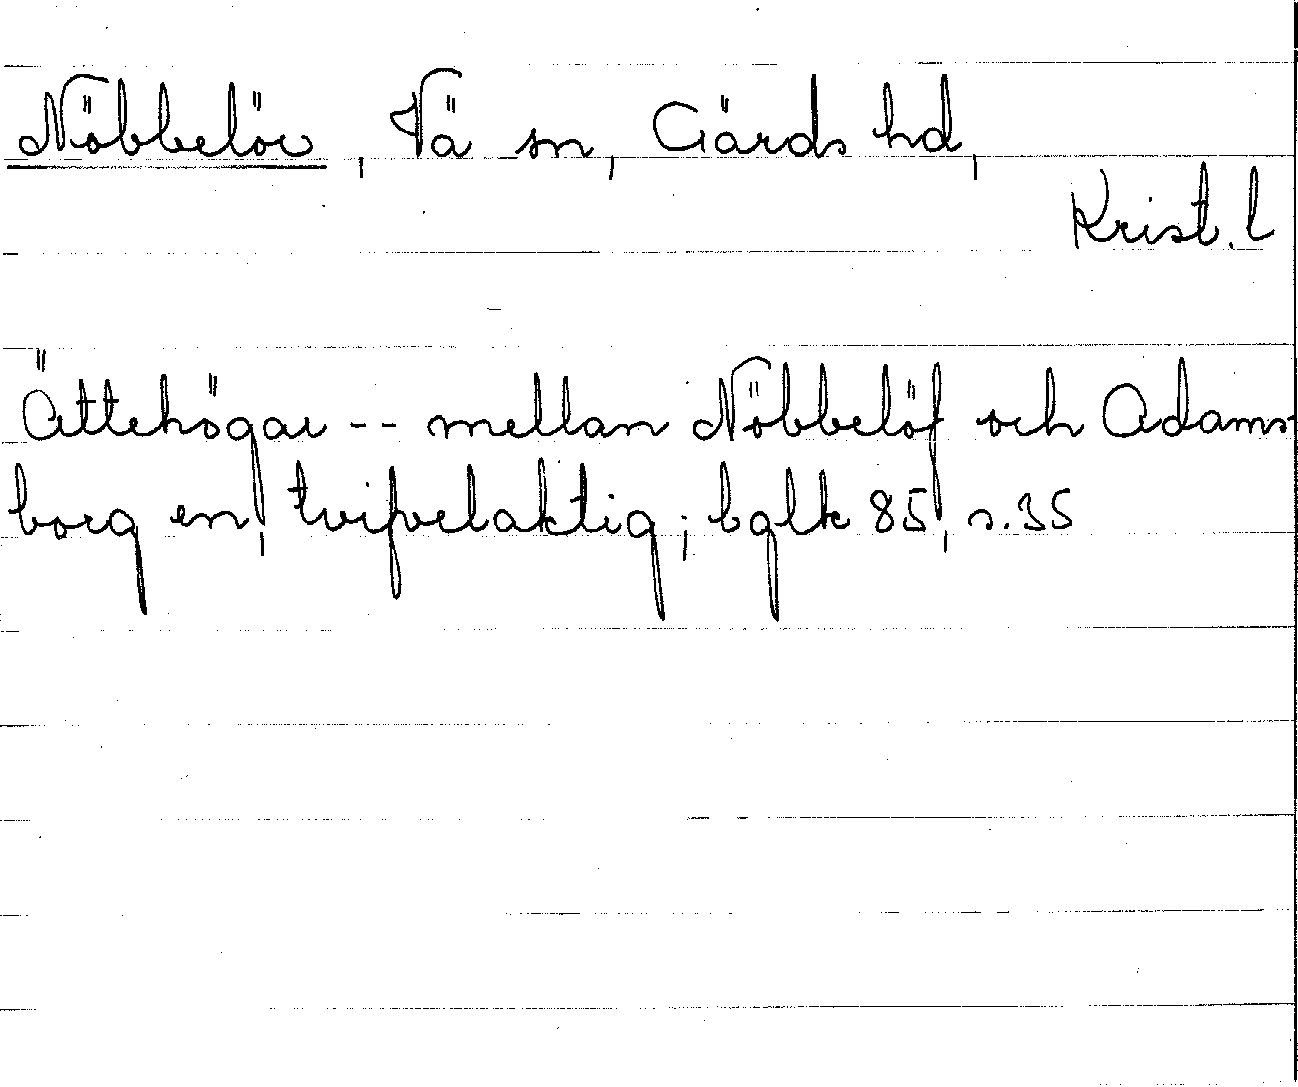 Nöbbelöv, Vä sn, Gärds hd,
Krist. l
Ättehögar -- mellan Nöbbelöf och Adams-
borg en, tvifvelaktig; bglk 85, s. 35